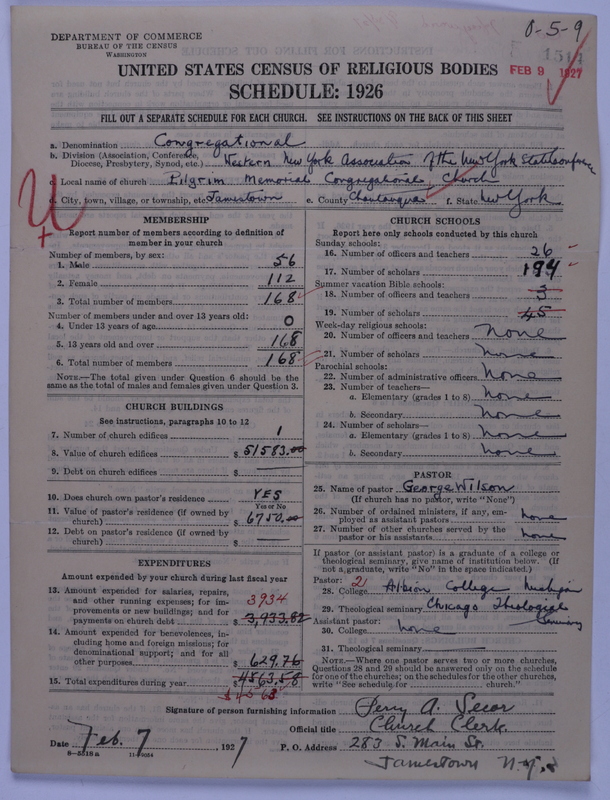 0-5-9
DEPARTMENT OF COMMERCE
BUREAU OF THE CENSUS
WASHINGTON
1514
FEB 9 1927
UNITED STATES CENSUS OF RELIGIOUS BODIES
SCHEDULE: 1926
FILL OUT A SEPARATE SCHEDULE FOR EACH CHURCH. SEE INSTRUCTIONS ON THE BACK OF THIS SHEET
a. Denomination Congregational
b. Division (Association, Conference, Diocese, Presbytery, Synod, etc.) Western New York Association of the New York State Conference
c. Local name of church Pilgrim Memorial Congregational Church
d. City, town, village, or township, etc. Jamestown e. County Chautauqua f. State New York
MEMBERSHIP
Report number of members according to definition of
member in your church
Number of members, by sex:
1. Male 56
2. Female 112
3. Total number of members 168
Number of members under and over 13 years old:
4. Under 13 years of age 0
5. 13 years old and over 168
6. Total number of members 168
NOTE.—The total given under Question 6 should be the
same as the total of males and females given under Question 3.
CHURCH BUILDINGS
See instructions, paragraphs 10 to 12
7. Number of church edifices 1
8. Value of church edifices $ 51583.00
9. Debt on church edifices $
10. Does church own pastor's residence YES
Yes or No
11. Value of pastor's residence (if owned by
church) $ 6750.00
12. Debt on pastor's residence (if owned by
church) $
EXPENDITURES
Amount expended by your church during last fiscal year
13. Amount expended for salaries, repairs,
and other running expenses; for im- 3934
provements or new buildings; and for
payments on church debt $ 3,933.82
14. Amount expended for benevolences, in-
cluding home and foreign missions; for
denominational support; and for all
other purposes $ 629.76
15. Total expenditures during year $ 4563.58
$4563
CHURCH SCHOOLS
Report here only schools conducted by this church
Sunday schools:
16. Number of officers and teachers 26
17. Number of scholars 194
Summer vacation Bible schools:
18. Number of officers and teachers 3
19. Number of scholars 45
Week-day religious schools:
20. Number of officers and teachers None
21. Number of scholars None
Parochial schools:
22. Number of administrative officers None
23. Number of teachers—
a. Elementary (grades 1 to 8) None
b. Secondary None
24. Number of scholars—
a. Elementary (grades 1 to 8) None
b. Secondary None
PASTOR
25. Name of pastor George Wilson
(If church has no pastor, write "None")
26. Number of ordained ministers, if any, em-
ployed as assistant pastors none
27. Number of other churches served by the
pastor or his assistants none
If pastor (or assistant pastor) is a graduate of a college or
theological seminary, give name of institution below. (If
not a graduate, write "No" in the space indicated.)
Pastor: 21
28. College Albion College Michigan
29. Theological seminary Chicago Theological Seminary
Assistant pastor:
30. College None
31. Theological seminary
NOTE.—Where one pastor serves two or more churches,
Questions 28 and 29 should be answered only on the schedule
for one of the churches; on the schedules for the other churches,
write "See schedule for church."
Signature of person furnishing information Percy A. Secor
Official title Church Clerk.
Date Feb. 7, 1927 P. O. Address 283 S. Main St.
8—5518 a Jamestown N.Y.